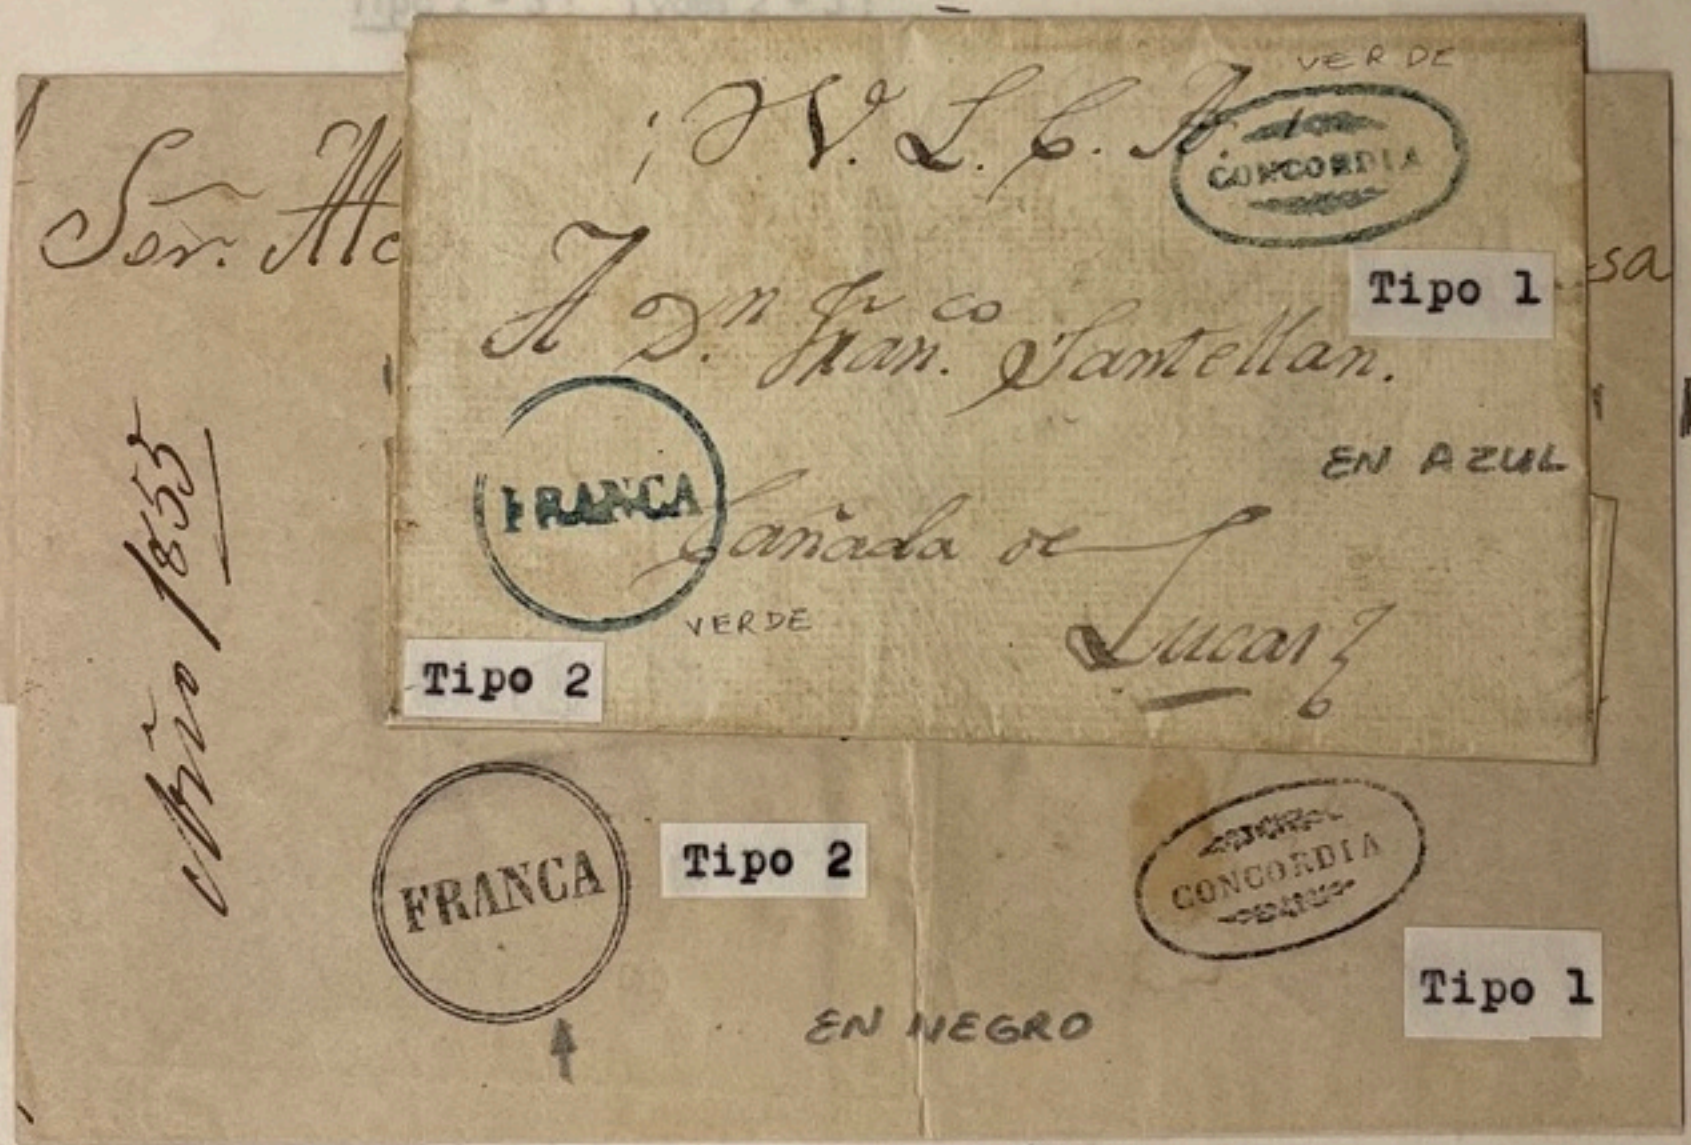 VERDE
¡ V. L. C. A.
CONCORDIA
Tipo 1
A Dn. Franco. Santellan.
EN AZUL
FRANCA
Cañada de
Lucas
VERDE
Tipo 2
Sor. Alc
sa
Año 1855
FRANCA
Tipo 2
CONCORDIA
Tipo 1
EN NEGRO